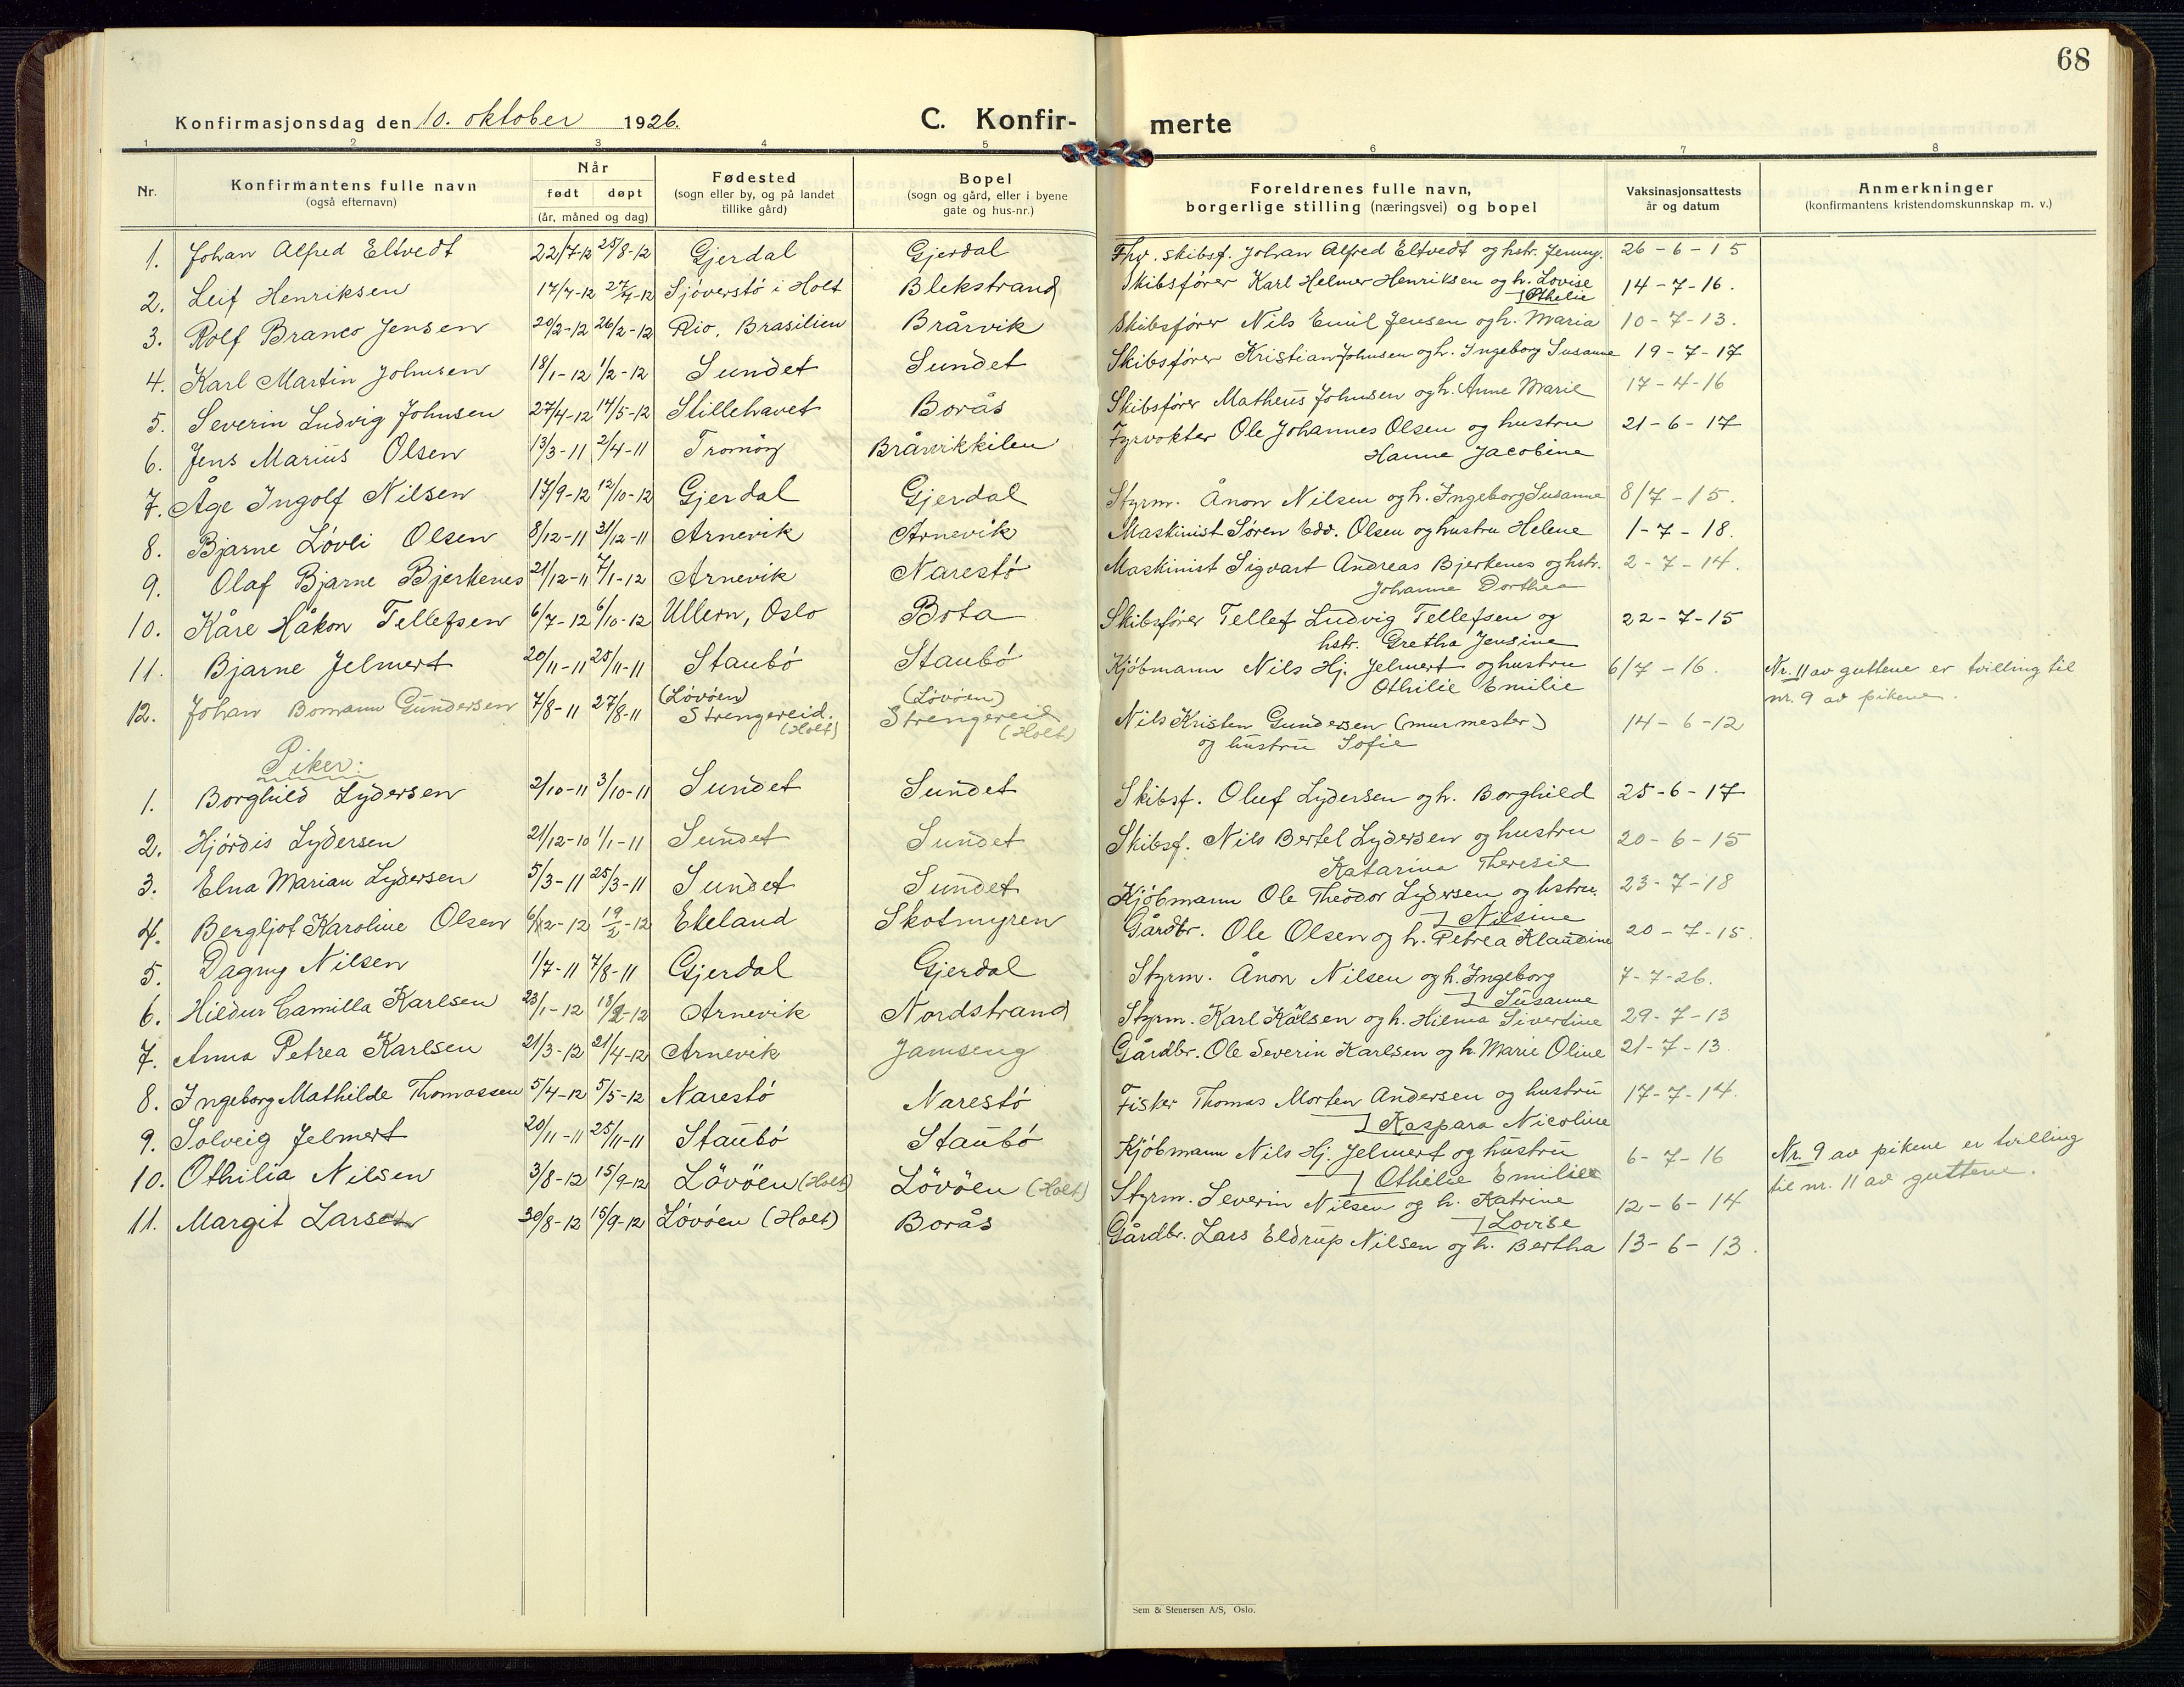 68
Konfirmasjonsdag den 10. oktober 1926.
C. Konfir- merte
1 2 3 4 5 6 7 8
Nr.
Konfirmantens fulle navn
(også efternavn)
Når
født døpt
(år, måned og dag)
Fødested
(sogn eller by, og på landet
tillike gård)
Bopel
(sogn og gård, eller i byene
gate og hus-nr.)
Foreldrenes fulle navn,
borgerlige stilling (næringsvei) og bopel
Vaksinasjonsattests
år og datum
Anmerkninger
(konfirmantens kristendomskunnskap m. v.)
1. Johan Alfred Eltvedt 22/7-12 25/8-12 Gjerdal Gjerdal Fhv. skibsf. Johan Alfred Eltvedt og hstr. Jenny. 26-6-15
2. Leif Henriksen 17/4-12 27/4-12 Sjøverstø i Holt Blekstrand Skibsfører Karl Helmer Henriksen og h. Lovise 14-7-16.
Othelie
3. Rolf Branco Jensen 20/2-12 26/2-12 Rio, Brasilien Brårvik Skibsfører Nils Emil Jensen og h. Maria 10-7-13.
4. Karl Martin Johnsen 18/1-12 1/2-12 Sundet Sundet Skibsfører Kristian Johnsen og h. Ingeborg Susanne 19-7-17
5. Severin Ludvig Johnsen 27/4-12 14/5-12 Stillehavet Borås Skibsfører Matheus Johnsen og h. Anne Marie 17-4-16
6. Jens Marius Olsen 13/3-11 2/4-11 Tromøy Bråvikkilen Fyrvokter Ole Johannes Olsen og hustru 21-6-17
Hanne Jacobine
7. Åge Ingolf Nilsen 17/9-12 12/10-12 Gjerdal Gjerdal Styrm. Ånon Nilsen og h. Ingeborg Susanne 8/7-15.
8. Bjarne Løvli Olsen 8/12-11 31/12-11 Arnevik Arnevik Maskinist Søren Edv. Olsen og hustru Helene 1-7-18.
9. Olaf Bjarne Bjerkenes 21/12-11 7/1-12 Arnevik Narestø Maskinist Sigvart Andreas Bjerkenes og hstr. 2-7-14.
Johanne Dorthea
10. Kåre Håkon Tellefsen 6/7-12 6/10-12 Ullern, Oslo Bota Skibsfører Tellef Ludvig Tellefsen og 22-7-15
hstr. Gretha Jensine
11. Bjarne Jelmert 20/11-11 25/11-11 Staubø Staubø Kjøbmann Nils Hj. Jelmert og hustru 6/7-16. Nr. 11 av guttene er tvilling til
Othilie Emilie nr. 9 av pikene.
12. Johan Bomann Gundersen 7/8-11 27/8-11 (Løvøen) (Løvøen)
Strengereid. (Holt) Strengereid (Holt) Nils Kristen Gundersen (murmester) 14-6-12
og hustru Sofie
Piker:
1. Borghild Lydersen 2/10-11 3/10-11 Sundet Sundet Skibsf. Oluf Lydersen og h. Borghild 25-6-17
2. Hjørdis Lydersen 21/12-10 1/1-11 Sundet Sundet Skibsf. Nils Bertel Lydersen og hustru 20-6-15
Katarina Theresie
3. Elna Marian Lydersen 5/3-11 25/3-11 Sundet Sundet Kjøbmann Ole Theodor Lydersen og hstru. 23-7-18
Nilsine
4. Bergljot Karoline Olsen 6/2-12 19/2-12 Ekeland Skotmyren Gårdbr. Ole Olsen og h. Petrea Klaudine 20-7-15.
5. Dagny Nilsen 1/7-11 7/8-11 Gjerdal Gjerdal Styrm. Ånon Nilsen og h. Ingeborg 7-7-26.
Susanne
6. Hildur Camilla Karlsen 23/1-12 18/2-12 Arnevik Nordstrand Styrm. Karl Karlsen og h. Hilma Sivertine 29-7-13
7. Anna Petrea Karlsen 21/3-12 21/4-12 Arnevik Jamseng Gårdbr. Ole Severin Karlsen og h. Marie Oline 21-7-13
8. Ingeborg Mathilde Thomassen 5/4-12 5/5-12 Narestø Narestø Fisker Thomas Morten Andersen og hustru 17-7-14.
Kaspara Nicoline
9. Solveig Jelmert 20/11-11 25/11-11 Staubø Staubø Kjøbmann Nils Hj. Jelmert og hustru 6-7-16 Nr. 9 av pikene er tvilling
Othilie Emilie til nr. 11 av guttene.
10. Othilia Nilsen 3/8-12 15/9-12 Løvøen (Holt) Løvøen (Holt) Styrm. Severin Nilsen og h. Katrine 12-6-14
Lovise
11. Margit Larsen 30/8-12 15/9-12 Løvøen (Holt) Borås Gårdbr. Lars Eldrup Nilsen og h. Bertha 13-6-13.
Sem & Stenersen A/S, Oslo.